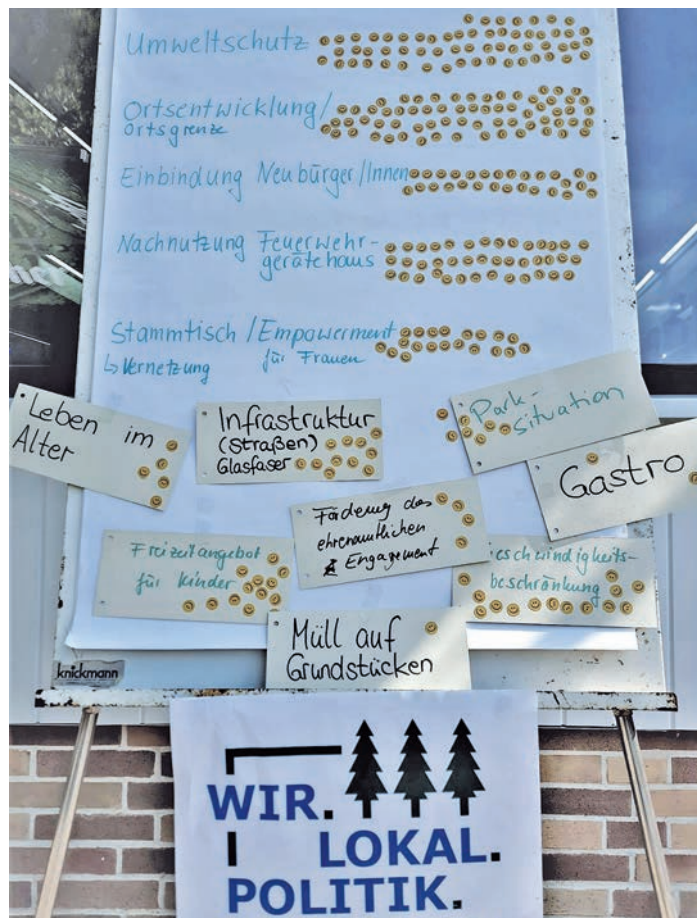 Umweltschutz
Ortsentwicklung/
Ortsgrenze
Einbindung Neubürger/Innen
Nachnutzung Feuerwehr-
gerätehaus
Stammtisch/Empowerment
↳ Vernetzung für Frauen
Leben im
Alter
Infrastruktur
(Straßen)
Glasfaser
Park-
situation
Gastro
Förderung des
ehrenamtlichen
Engagement
Freizeitangebot
für Kinder
eschwindigkeits-
beschränkung
Müll auf
Grundstücken
knickmann
WIR.
LOKAL.
POLITIK.